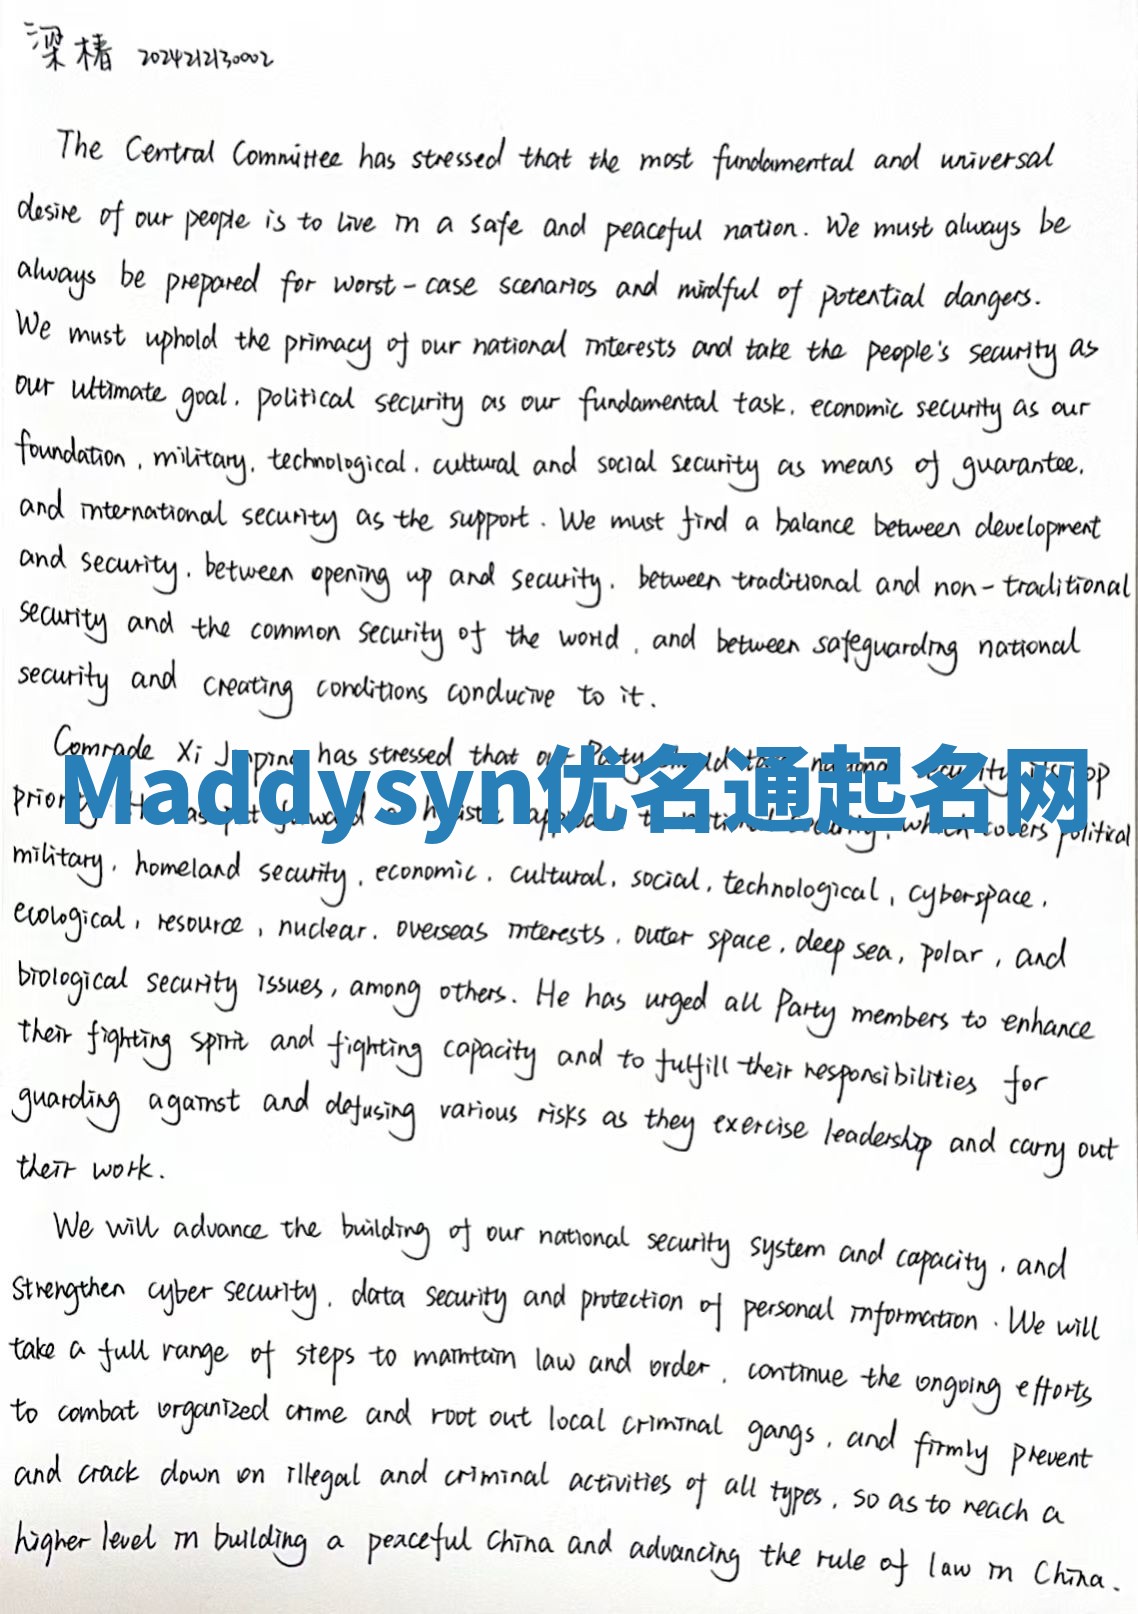 梁椿 2024212130002
The Central Committee has stressed that the most fundamental and universal
desire of our people is to live in a safe and peaceful nation. We must always be
always be prepared for worst-case scenarios and mindful of potential dangers.
We must uphold the primacy of our national interests and take the people's security as
our ultimate goal, political security as our fundamental task, economic security as our
foundation, military, technological, cultural and social security as means of guarantee,
and international security as the support. We must find a balance between development
and security, between opening up and security, between traditional and non-traditional
security and the common security of the world, and between safeguarding national
security and creating conditions conducive to it.
Comrade Xi Jinping has stressed that our Party should take national security its top
Maddysyn优名通起名网
priority. He has put forward a holistic approach to national security, which covers political
military, homeland security, economic, cultural, social, technological, cyberspace,
ecological, resource, nuclear, overseas interests, outer space, deep sea, polar, and
biological security issues, among others. He has urged all Party members to enhance
their fighting spirit and fighting capacity and to fulfill their responsibilities for
guarding against and defusing various risks as they exercise leadership and carry out
their work.
We will advance the building of our national security system and capacity, and
strengthen cyber security, data security and protection of personal information. We will
take a full range of steps to maintain law and order, continue the ongoing efforts
to combat organized crime and root out local criminal gangs, and firmly prevent
and crack down on illegal and criminal activities of all types, so as to reach a
higher level in building a peaceful China and advancing the rule of law in China.